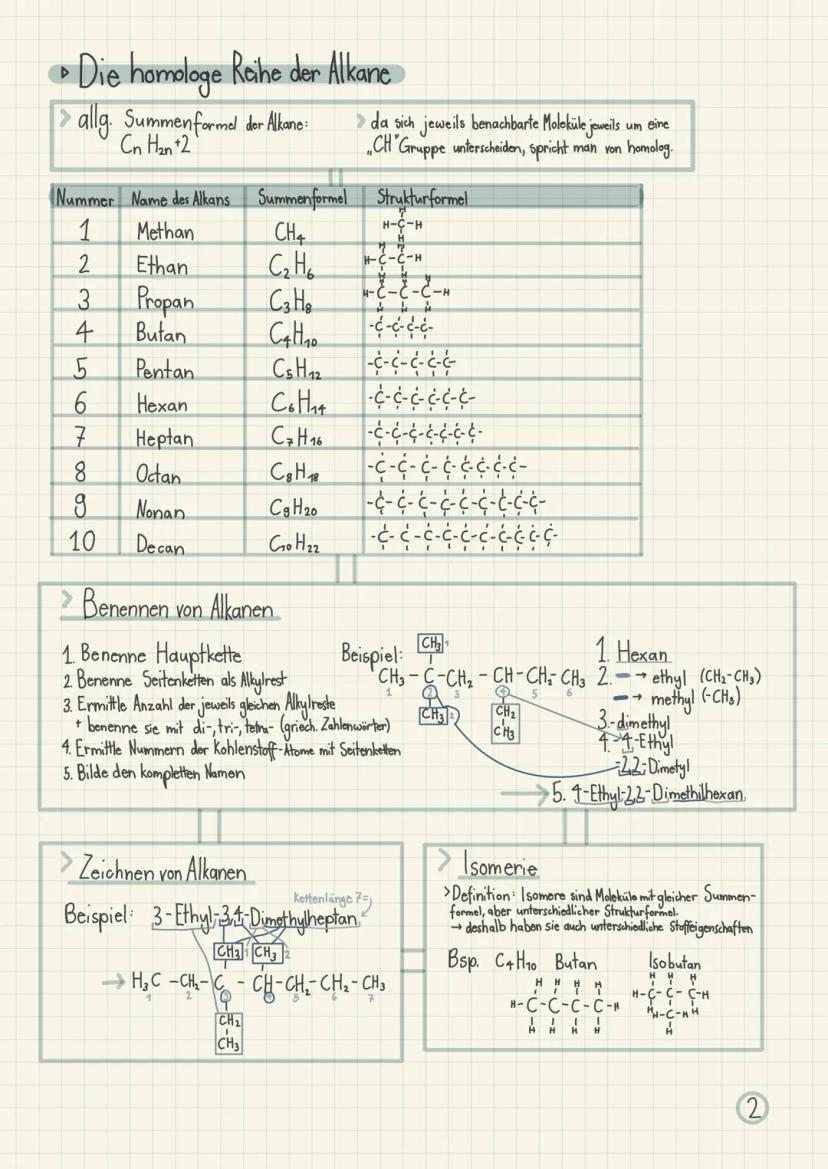 Die homologe Reihe der Alkane
allg. Summenformel der Alkane:
Cn H2n+2
da sich jeweils benachbarte Moleküle jeweils um eine
„CH" Gruppe unterscheiden, spricht man von homolog.
Nummer Name des Alkans Summenformel Strukturformel
1 Methan CH4
H
H-C-H
H
2 Ethan C2H6
H H
H-C-C-H
H H
3 Propan C3H8
H
H-C-C-C-H
H H H
4 Butan C4H10 -C-C-C-C-
5 Pentan C5H12 -C-C-C-C-C-
6 Hexan C6H14 -C-C-C-C-C-C-
7 Heptan C7H16 -C-C-C-C-C-C-C-
8 Octan C8H18 -C-C-C-C-C-C-C-C-
9 Nonan C9H20 -C-C-C-C-C-C-C-C-C-
10 Decan C10H22 -C-C-C-C-C-C-C-C-C-C-
Benennen von Alkanen
1. Benenne Hauptkette
2. Benenne Seitenketten als Alkylrest
3. Ermittle Anzahl der jeweils gleichen Alkylreste
+ benenne sie mit di-, tri-, tetra- (griech. Zahlenwörter)
4. Ermittle Nummern der Kohlenstoff-Atome mit Seitenketten
5. Bilde den kompletten Namen
Beispiel:
CH3 1
CH3 - C - CH2 - CH - CH2 - CH3
1 2 3 4 5 6
CH3 2
CH2
CH3
1. Hexan
2. → ethyl (CH2-CH3)
→ methyl (-CH3)
3. -dimethyl
4. 4-Ethyl
-2,2-Dimetyl
5. 4-Ethyl-2,2-Dimethilhexan
Zeichnen von Alkanen
Kettenlänge 7=
Beispiel: 3-Ethyl-3,4-Dimethylheptan
CH3 1 CH3 2
H3C - CH2 - C - CH - CH2 - CH2 - CH3
1 2 3 4 5 6 7
CH2
CH3
Isomerie
Definition: Isomere sind Moleküle mit gleicher Summen-
formel, aber unterschiedlicher Strukturformel.
→ deshalb haben sie auch unterschiedliche Stoffeigenschaften
Bsp. C4H10 Butan Isobutan
H H H H
H-C-C-C-C-H
H H H H
H H H
H-C-C-C-H
H H
H-C-H
H
2